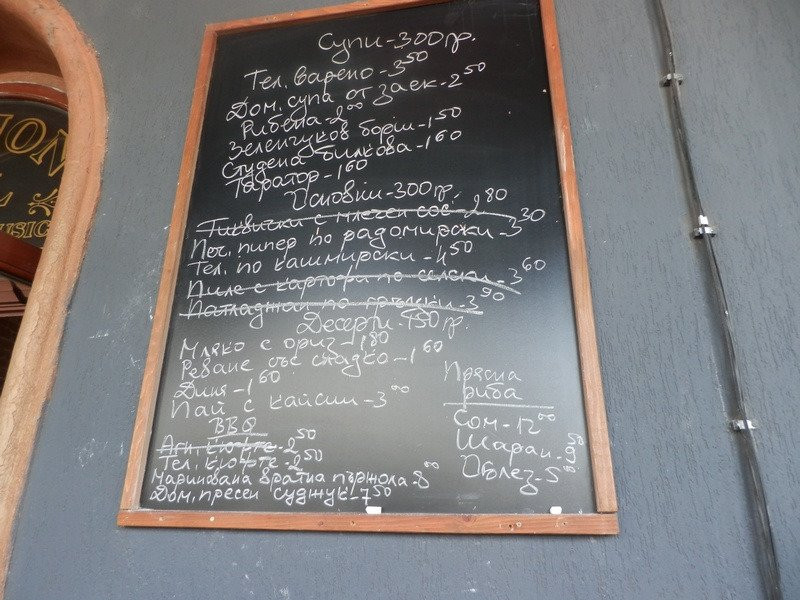 Супи-300гр.
Тел. варено-3⁵⁰
Дом. супа от заек-2⁵⁰
Рибена-2⁰⁰
Зеленчуков борш-1⁵⁰
Студена билкова-1⁶⁰
Таратор-1⁶⁰
Основни-300гр.
Тиквички с млечен сос-2⁸⁰
Печ. пипер по радомирски-3³⁰
Тел. по кашмирски-4⁵⁰
Пиле с картофи по селски-3⁶⁰
Патладжан по гръцки-3⁹⁰
Десерти-150гр.
Мляко с ориз-1⁸⁰
Реване със сладко-1⁶⁰
Диня-1⁶⁰
Пай с кайсии-3⁰⁰
BBQ
Агн. кюфте-2⁵⁰
Тел. кюфте-2⁵⁰
Маринована вратна пържола-8⁰⁰
Дом. пресен суджук-7⁵⁰
Прясна
риба
Сом-12⁰⁰
Шаран-9⁵⁰
ION
L
USIC